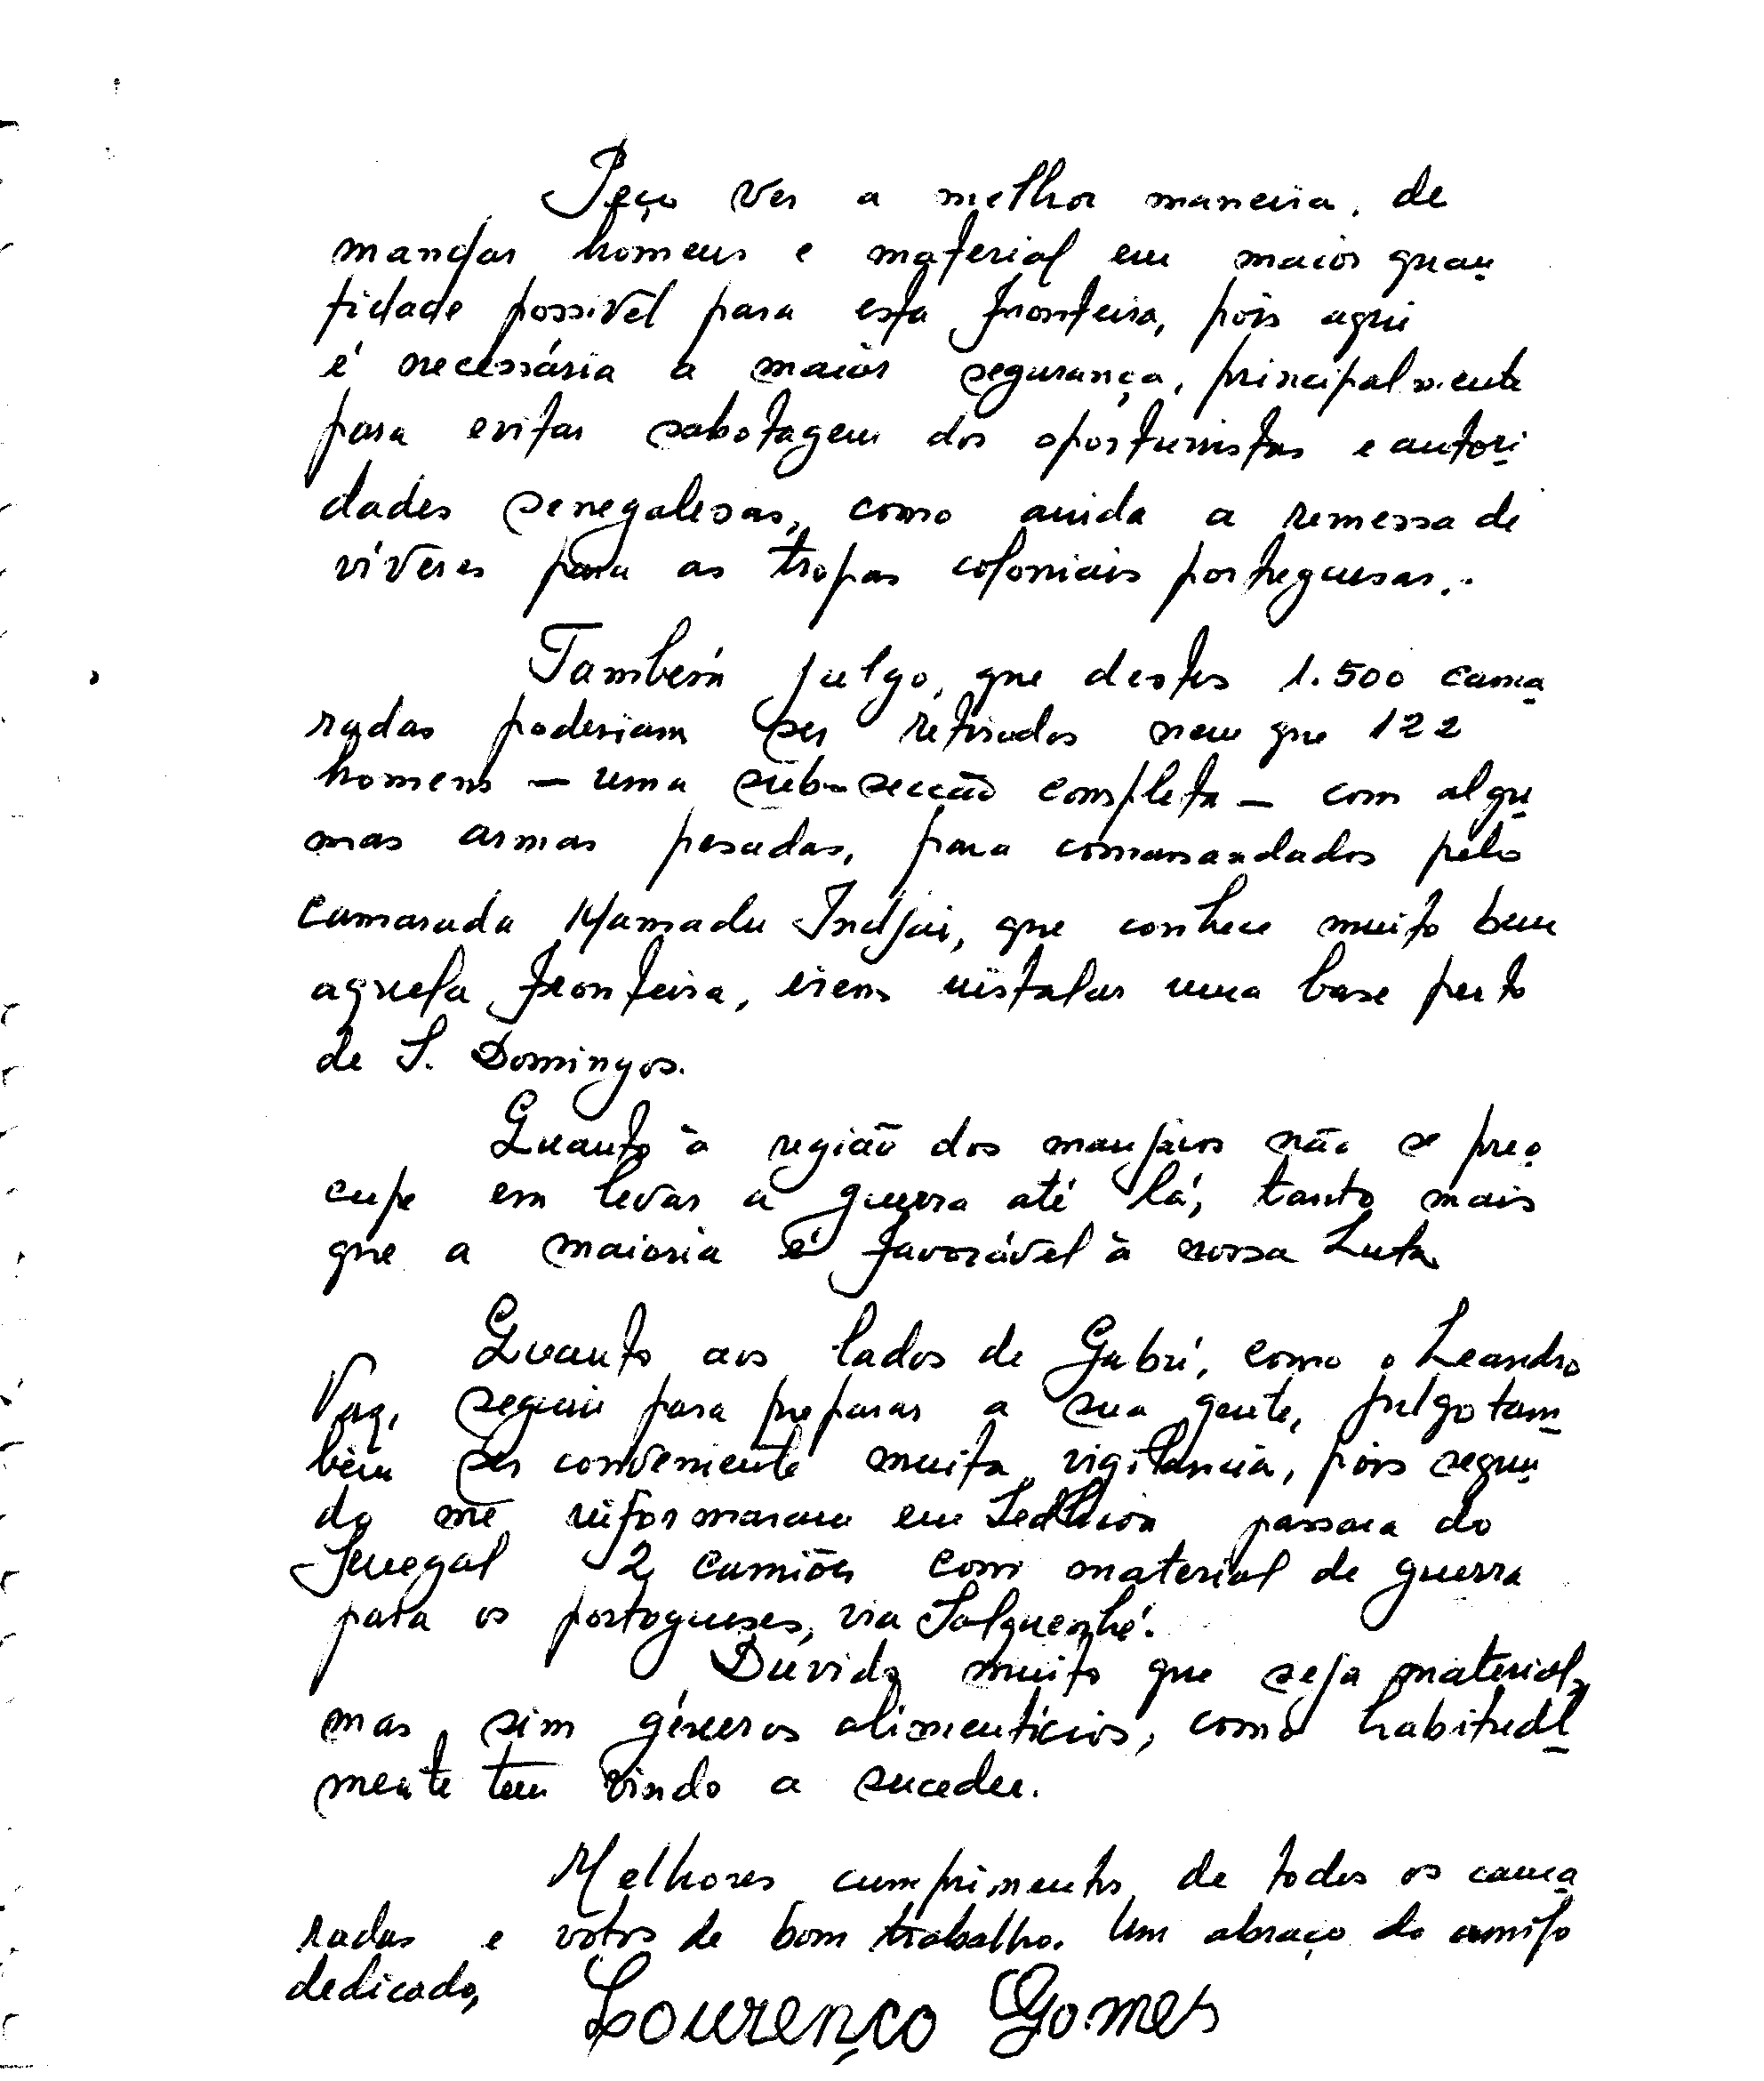 Peço ver a melhor maneira, de
mandar homens e material em maior quan
tidade possivel para esta fronteira, pois aqui
é necessária a maior segurança, principalmente
para evitar sabotagem dos oportunistas e autori
dades senegalesas, como ainda a remessa de
víveres para as tropas coloniais portuguesas.
Também julgo, que destes 1.500 cama
radas poderiam ser retirados nem que 122
homens - uma sub-secção completa - com algu
mas armas pesadas, para comanandados pelo
camarada Mamadu Indjai, que conhece muito bem
aquela fronteira, irem instalar uma base perto
de S. Domingos.
Quanto à região dos manjacos não se preo
cupe em levar a guerra até lá, tanto mais
que a maioria é favorável à nossa Luta
Quanto aos lados de Gabú, como o Leandro
Vaz, seguiu para preparar a sua gente, julgo tam
bém ser conveniente muita vigilância, pois segun
do me informaram em Sedhiou passara do
Senegal 2 camiões com material de guerra
para os portogueses, via Salquenhé.
Duvido muito que seja material,
mas sim géneros alimentícios, como habitual
mente tem vindo a suceder.
Melhores cumprimentos de todos os cama
radas e votos de bom trabalho. Um abraço do amigo
dedicado,
Lourenço Gomes